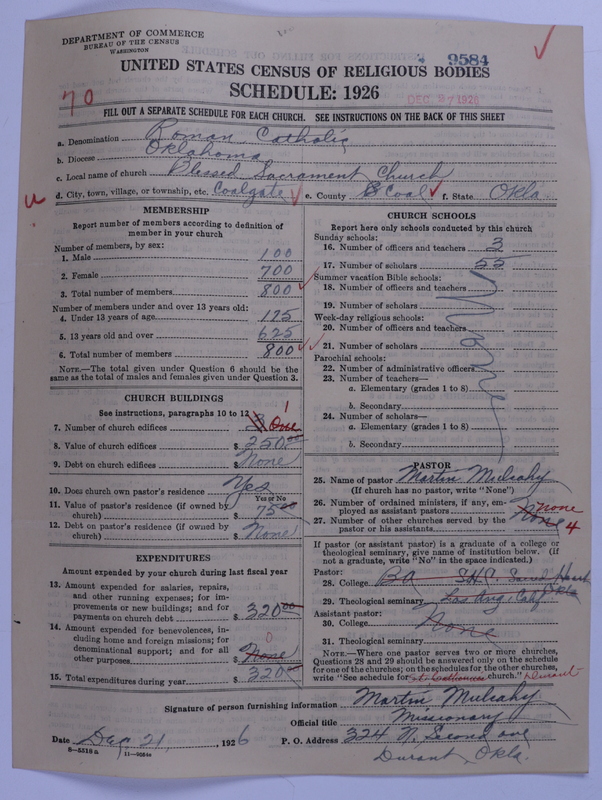 DEPARTMENT OF COMMERCE
BUREAU OF THE CENSUS
WASHINGTON
9584
UNITED STATES CENSUS OF RELIGIOUS BODIES
SCHEDULE: 1926
DEC 27 1926
70
FILL OUT A SEPARATE SCHEDULE FOR EACH CHURCH. SEE INSTRUCTIONS ON THE BACK OF THIS SHEET
a. Denomination Roman Catholic
b. Diocese Oklahoma
c. Local name of church Blessed Sacrament Church
d. City, town, village, or township, etc. Coalgate e. County Coal f. State Okla.
MEMBERSHIP
Report number of members according to definition of member in your church
Number of members, by sex:
1. Male 100
2. Female 700
3. Total number of members 800
Number of members under and over 13 years old:
4. Under 13 years of age 175
5. 13 years old and over 625
6. Total number of members 800
NOTE.—The total given under Question 6 should be the same as the total of males and females given under Question 3.
CHURCH BUILDINGS
See instructions, paragraphs 10 to 12
7. Number of church edifices One 1
8. Value of church edifices $ 250.00
9. Debt on church edifices $ None
10. Does church own pastor's residence Yes
Yes or No
11. Value of pastor's residence (if owned by church) $ 75.00
12. Debt on pastor's residence (if owned by church) $ None
EXPENDITURES
Amount expended by your church during last fiscal year
13. Amount expended for salaries, repairs, and other running expenses; for improvements or new buildings; and for payments on church debt $ 320.00
14. Amount expended for benevolences, including home and foreign missions; for denominational support; and for all other purposes $ None 0
15. Total expenditures during year $ 320
CHURCH SCHOOLS
Report here only schools conducted by this church
Sunday schools:
16. Number of officers and teachers 3
17. Number of scholars 55
Summer vacation Bible schools:
18. Number of officers and teachers
19. Number of scholars
Week-day religious schools:
20. Number of officers and teachers
21. Number of scholars
Parochial schools:
22. Number of administrative officers
23. Number of teachers—
a. Elementary (grades 1 to 8)
b. Secondary
24. Number of scholars—
a. Elementary (grades 1 to 8)
b. Secondary
None
PASTOR
25. Name of pastor Martin Mulcahy
(If church has no pastor, write "None")
26. Number of ordained ministers, if any, employed as assistant pastors none
27. Number of other churches served by the pastor or his assistants None 4
If pastor (or assistant pastor) is a graduate of a college or theological seminary, give name of institution below. (if not a graduate, write "No" in the space indicated.)
Pastor:
28. College BA S.H.C. Sacred Heart Okla
29. Theological seminary Los Ang. Caly
Assistant pastor:
30. College None
31. Theological seminary
NOTE.—Where one pastor serves two or more churches, Questions 28 and 29 should be answered only on the schedule for one of the churches; on the schedules for the other churches, write "See schedule for church." Durant
Signature of person furnishing information Martin Mulcahy
Official title Missionary
Date Dec. 21, 1926 P. O. Address 324 N. Second ave
Durant, Okla.
8-5518a 11-9054a